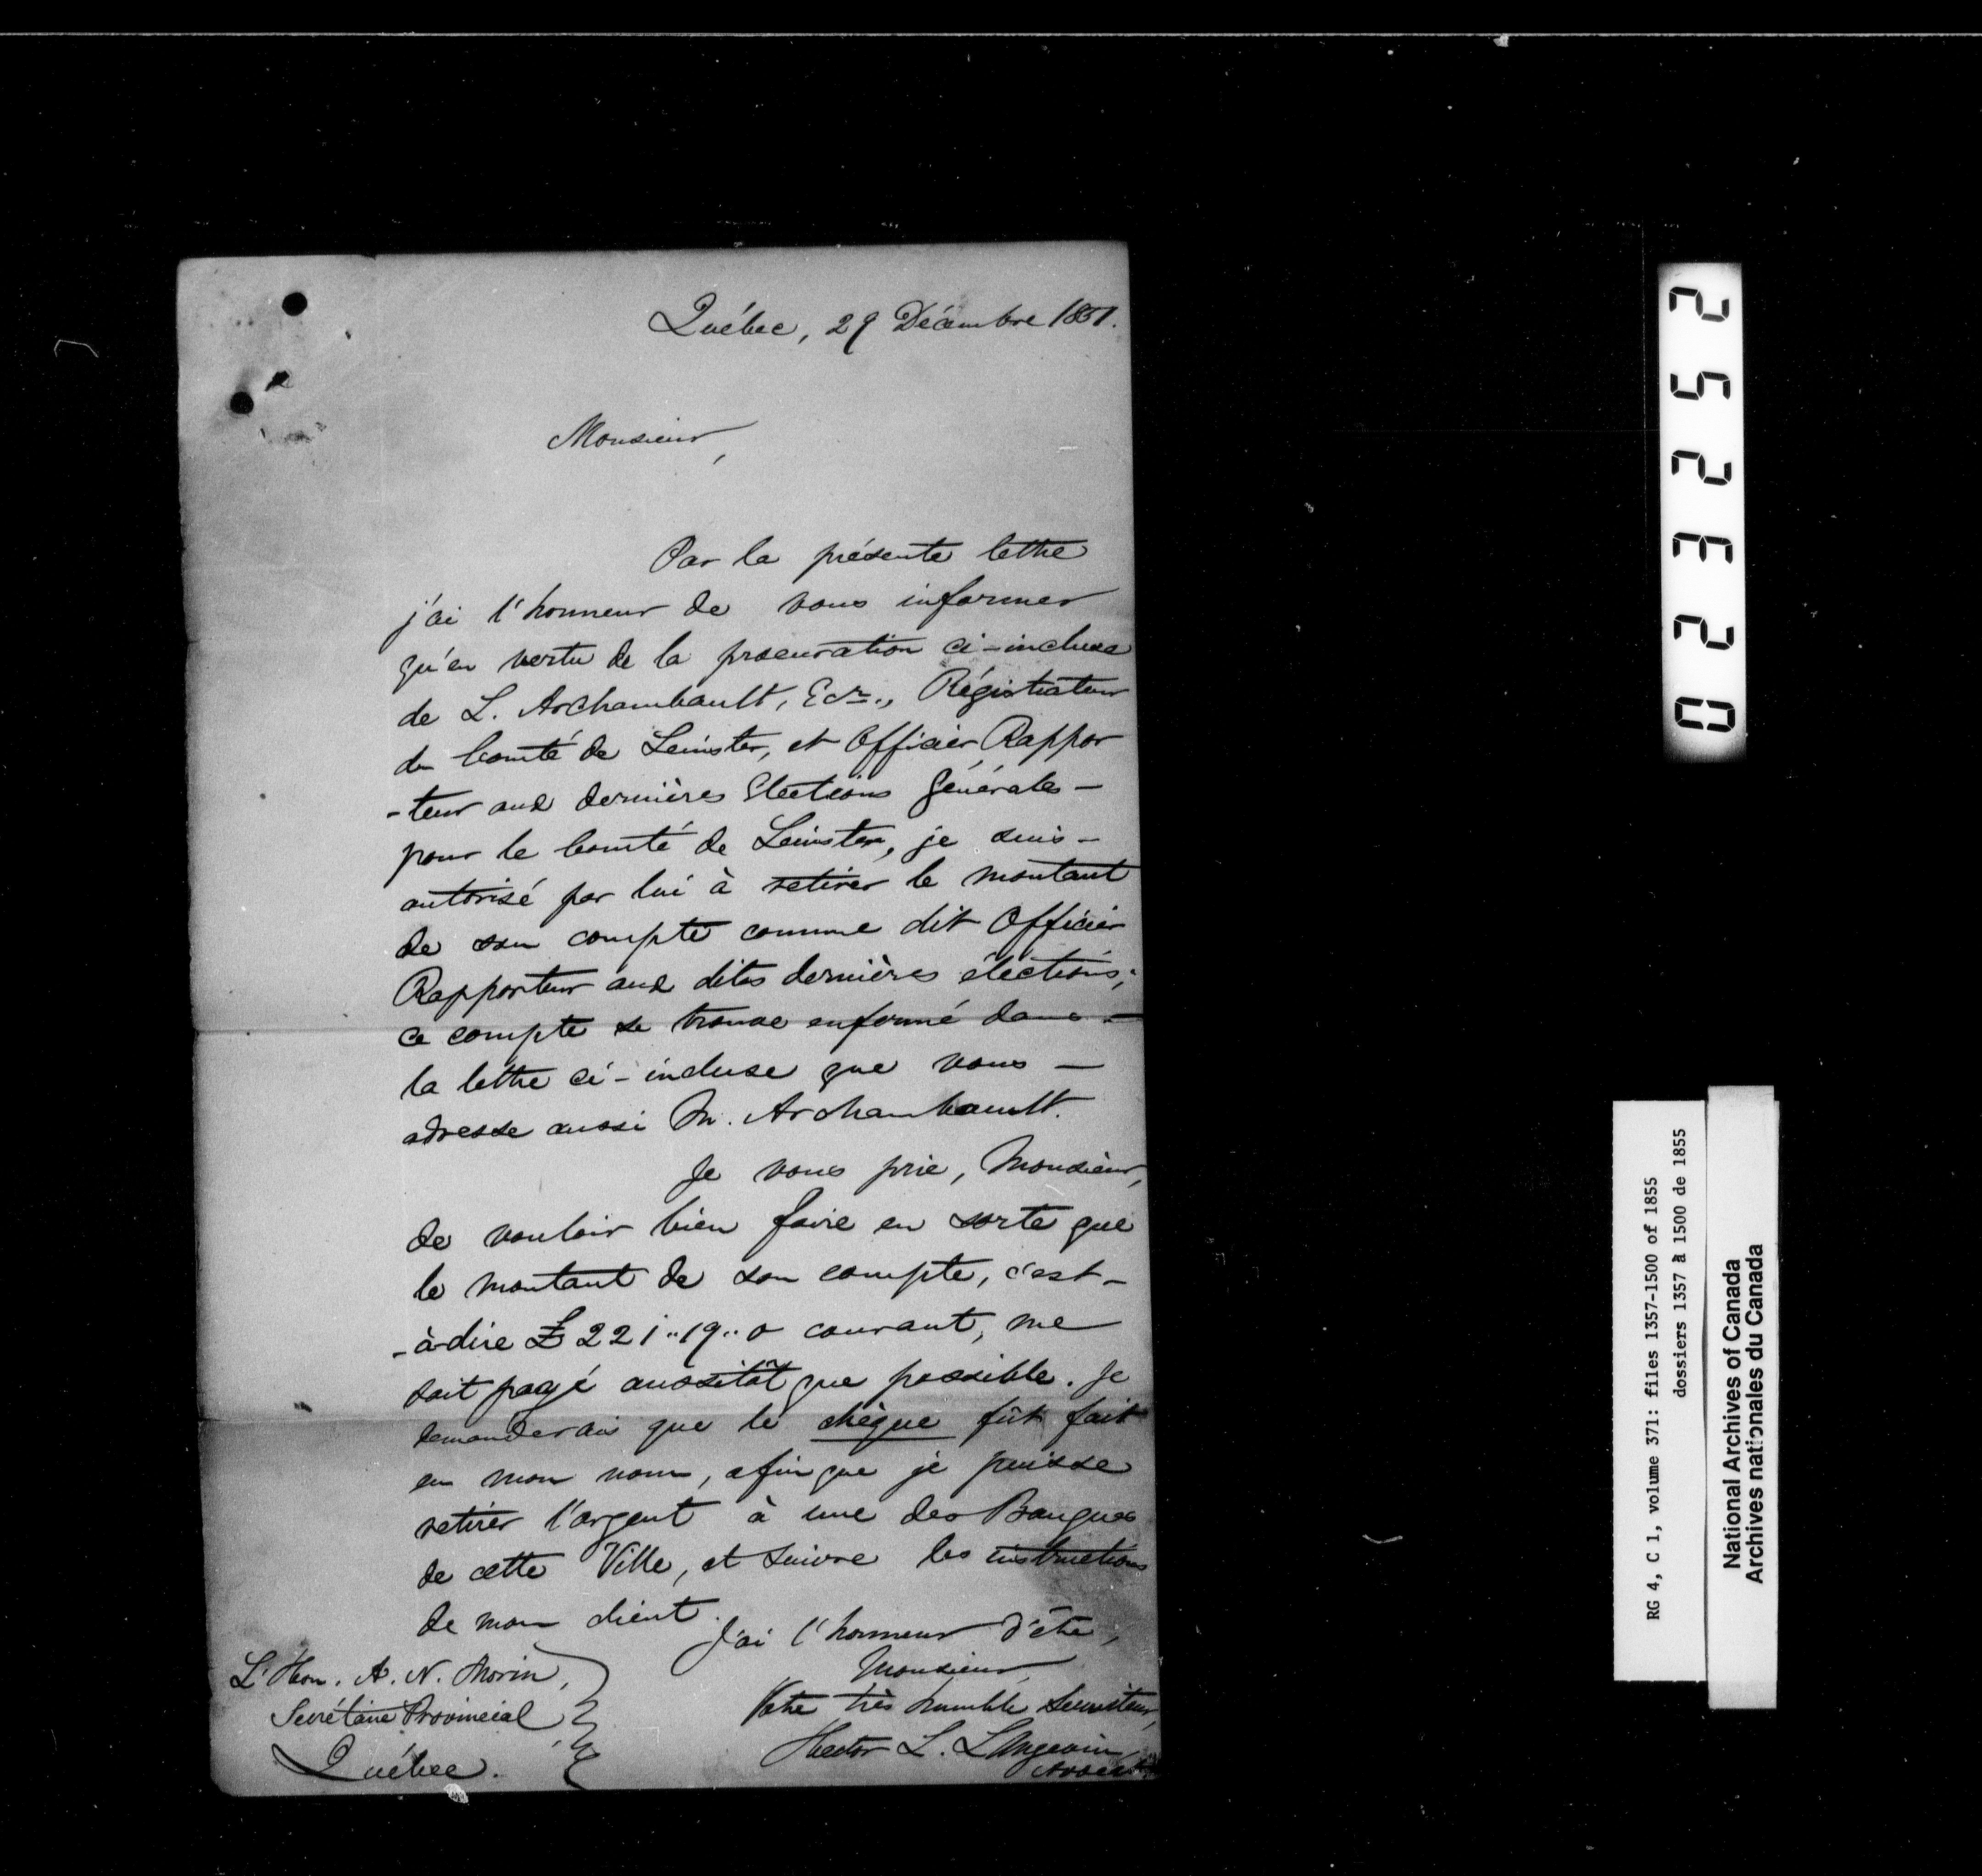 Québec, 29 Décembre 1851.
Monsieur,
Par la présente lettre
j'ai l'honneur de vous informer
qu'en vertu de la procuration ci-incluse
de L. Archambault, Ecr., Régistrateur
du Comté de Leinster, et Officier Rappor
-teur aux dernières Elections Générales -
pour le Comté de Leinster, je suis -
autorisé par lui à retirer le montant
de son compte comme dit Officier
Rapporteur aux dites dernières élections;
ce compte se trouve enfermé dans -
la lettre ci-incluse que vous -
adresse aussi M. Archambault.
Je vous prie, Monsieur,
de vouloir bien faire en sorte que
le montant de son compte, c'est-
-à-dire £ 221"19"0 courant, me
soit payé aussitôt que possible. Je
demanderais que le chèque fût fait
en mon nom, afin que je puisse
retirer l'argent à une des Banques
de cette Ville, et suivre les instructions
de mon client.
J'ai l'honneur d'être,
Monsieur,
Votre très humble Serviteur,
Hector L. Langevin,
Avocat
L'Hon. A. N. Morin,
Secrétaire Provincial
Québec.
0 2 3 2 5 2
RG 4, C 1, volume 371: files 1357-1500 of 1855
dossiers 1357 à 1500 de 1855
National Archives of Canada
Archives nationales du Canada